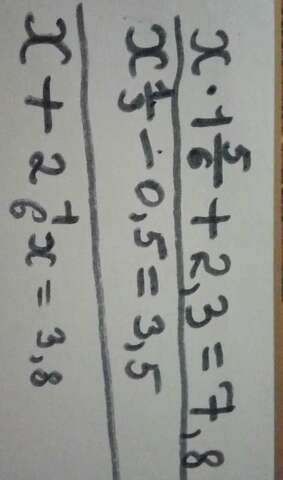 x · 1 5/6 + 2,3 = 7,8
x 1/3 − 0,5 = 3,5
x + 2 1/6 x = 3,8